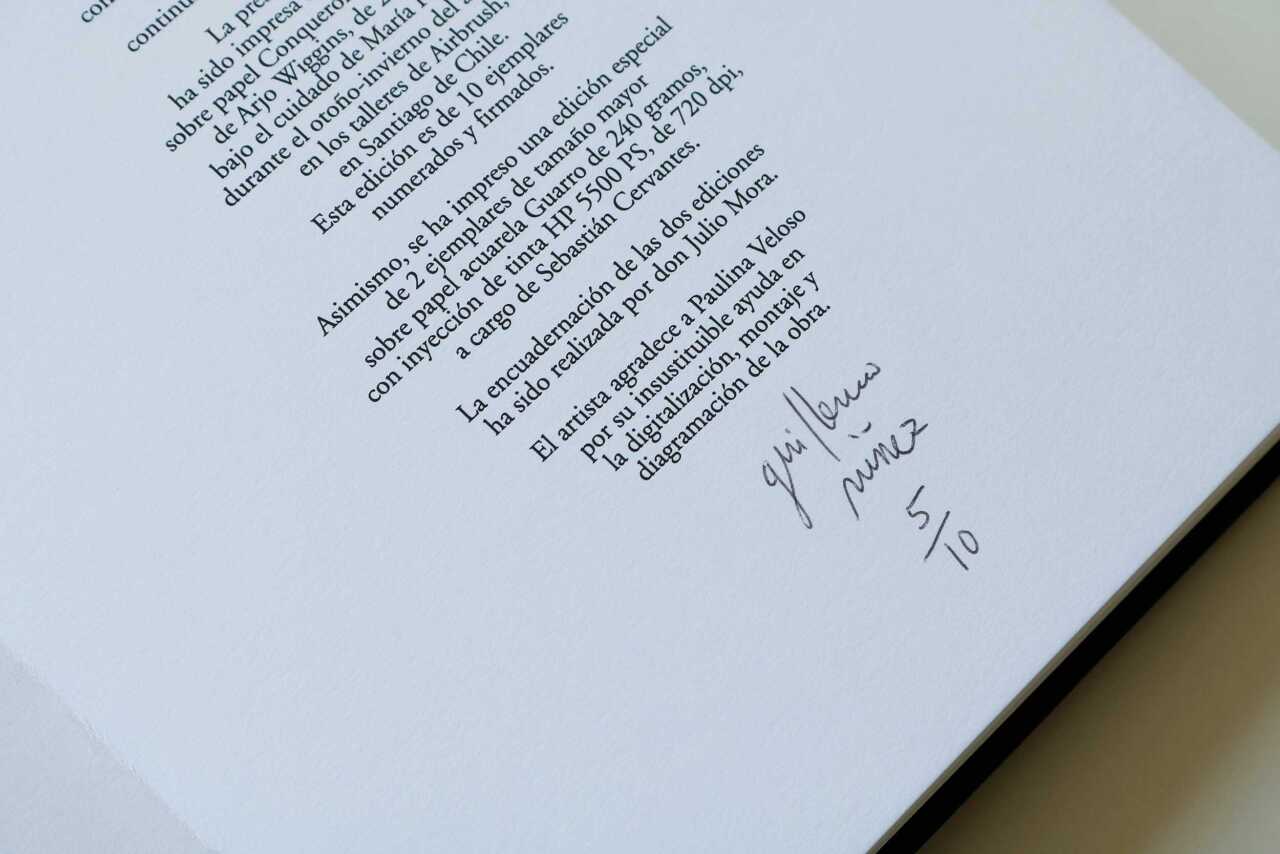 continu
La pre
ha sido impresa
sobre papel Conqueror
de Arjo Wiggins, de
bajo el cuidado de María
durante el otoño-invierno del
en los talleres de Airbrush,
en Santiago de Chile.
Esta edición es de 10 ejemplares
numerados y firmados.
Asimismo, se ha impreso una edición especial
de 2 ejemplares de tamaño mayor
sobre papel acuarela Guarro de 240 gramos,
con inyección de tinta HP 5500 PS, de 720 dpi,
a cargo de Sebastián Cervantes.
La encuadernación de las dos ediciones
ha sido realizada por don Julio Mora.
El artista agradece a Paulina Veloso
por su insustituible ayuda en
la digitalización, montaje y
diagramación de la obra.
guillermo
núñez
5/10